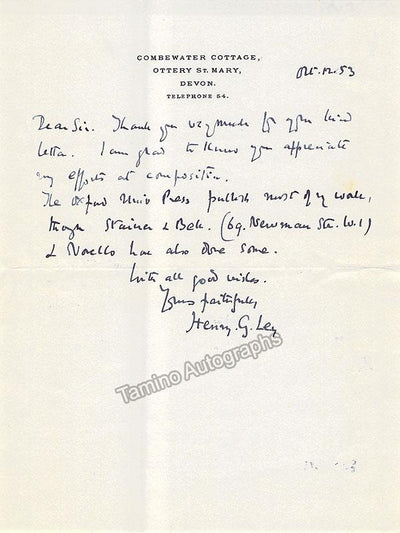 COMBEWATER COTTAGE,
OTTERY ST. MARY,
DEVON.
TELEPHONE 54.
Oct. 12. 53
Dear Sir. Thank you very much for your kind
letter. I am glad to know you appreciate
my efforts at composition.
The Oxford Univ Press publish most of my work,
though Stainer & Bell. (69. Newman Str. W.1)
& Novello have also done some.
With all good wishes.
Yours faithfully
Henry. G. Ley
Tamino Autographs